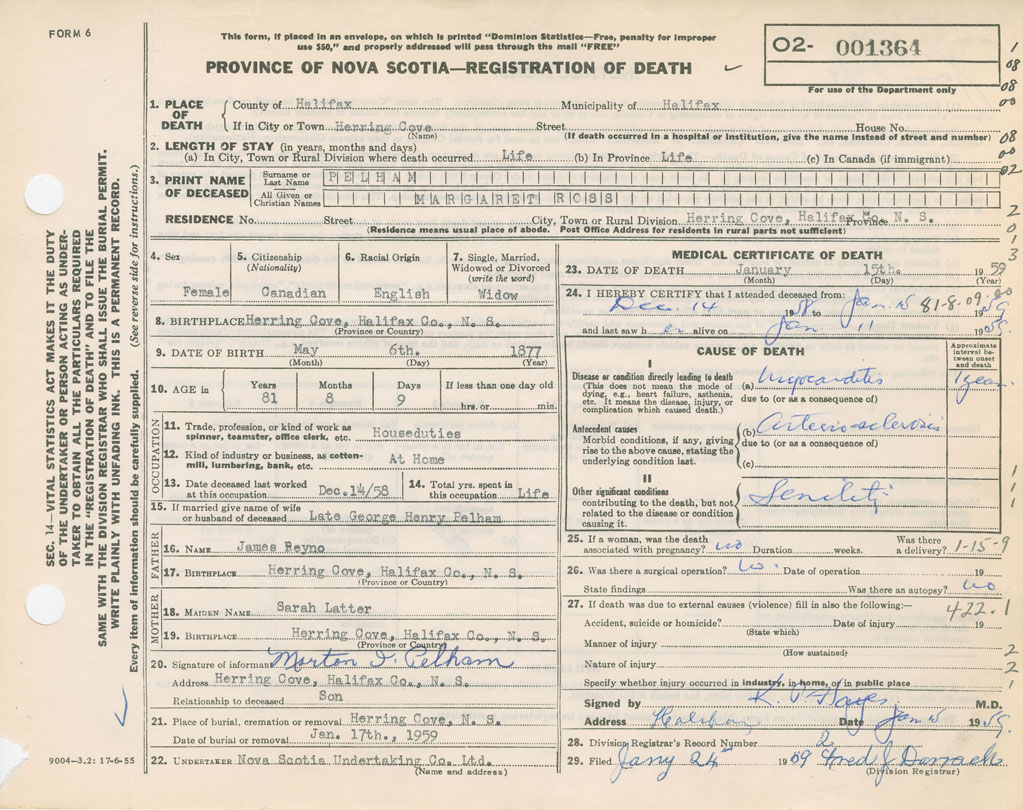 FORM 6
This form, if placed in an envelope, on which is printed "Dominion Statistics—Free, penalty for improper
use $50," and properly addressed will pass through the mail "FREE"
PROVINCE OF NOVA SCOTIA—REGISTRATION OF DEATH
02- 001364
For use of the Department only
1. PLACE OF DEATH
County of Halifax Municipality of Halifax
If in City or Town Herring Cove Street House No.
(Name) (If death occurred in a hospital or institution, give the name instead of street and number)
2. LENGTH OF STAY (in years, months and days)
(a) In City, Town or Rural Division where death occurred Life (b) In Province Life (c) In Canada (if immigrant)
3. PRINT NAME OF DECEASED
Surname or Last Name PELHAM
All Given or Christian Names MARGARET ROSS
RESIDENCE No. Street City, Town or Rural Division Herring Cove, Halifax Co. N. S.
Province
(Residence means usual place of abode. Post Office Address for residents in rural parts not sufficient)
4. Sex
Female
5. Citizenship
(Nationality)
Canadian
6. Racial Origin
English
7. Single, Married,
Widowed or Divorced
(write the word)
Widow
8. BIRTHPLACE Herring Cove, Halifax Co., N. S.
(Province or Country)
9. DATE OF BIRTH May 6th. 1877
(Month) (Day) (Year)
10. AGE in
Years Months Days If less than one day old
81 8 9 hrs. or min.
OCCUPATION
11. Trade, profession, or kind of work as
spinner, teamster, office clerk, etc. Houseduties
12. Kind of industry or business, as cotton-
mill, lumbering, bank, etc. At Home
13. Date deceased last worked
at this occupation Dec.14/58
14. Total yrs. spent in
this occupation Life
15. If married give name of wife
or husband of deceased Late George Henry Pelham
FATHER
16. NAME James Reyno
17. BIRTHPLACE Herring Cove, Halifax Co., N. S.
(Province or Country)
MOTHER
18. MAIDEN NAME Sarah Latter
19. BIRTHPLACE Herring Cove, Halifax Co., N. S.
(Province or Country)
20. Signature of informant Morton I. Pelham
Address Herring Cove, Halifax Co., N. S.
Relationship to deceased Son
21. Place of burial, cremation or removal Herring Cove, N. S.
Date of burial or removal Jan. 17th., 1959
22. UNDERTAKER Nova Scotia Undertaking Co. Ltd.
(Name and address)
MEDICAL CERTIFICATE OF DEATH
23. DATE OF DEATH January 15th. 1959
(Month) (Day) (Year)
24. I HEREBY CERTIFY that I attended deceased from:
Dec. 14 1958 to Jan. 15 1959
81-8-09.
and last saw h er alive on Jan 11 1959
CAUSE OF DEATH
Approximate
interval be-
tween onset
and death
I
Disease or condition directly leading to death
(This does not mean the mode of
dying, e.g., heart failure, asthenia,
etc. It means the disease, injury, or
complication which caused death.)
(a) Myocarditis 1 year
due to (or as a consequence of)
Antecedent causes
Morbid conditions, if any, giving
rise to the above cause, stating the
underlying condition last.
(b) Arterio-sclerosis
due to (or as a consequence of)
(c)
II
Other significant conditions
contributing to the death, but not
related to the disease or condition
causing it.
Senility
25. If a woman, was the death
associated with pregnancy? no Duration weeks. Was there
a delivery?
1-15-9
26. Was there a surgical operation? no Date of operation 19
State findings Was there an autopsy? no
27. If death was due to external causes (violence) fill in also the following:—
422.1
Accident, suicide or homicide? Date of injury 19
(State which)
Manner of injury
(How sustained)
Nature of injury
Specify whether injury occurred in industry, in home, or in public place
Signed by M.D.
Address Date Jan 15 1959
28. Division Registrar's Record Number 2
29. Filed Jany 24 1959
(Division Registrar)
SEC. 14—VITAL STATISTICS ACT MAKES IT THE DUTY
OF THE UNDERTAKER OR PERSON ACTING AS UNDER-
TAKER TO OBTAIN ALL THE PARTICULARS REQUIRED
IN THE "REGISTRATION OF DEATH" AND TO FILE THE
SAME WITH THE DIVISION REGISTRAR WHO SHALL ISSUE THE BURIAL PERMIT.
WRITE PLAINLY WITH UNFADING INK. THIS IS A PERMANENT RECORD.
Every item of information should be carefully supplied. (See reverse side for instructions.)
9004-3.2: 17-6-55
1
08
08
00
08
00
02
2
0
1
3
1
1
1
2
2
1